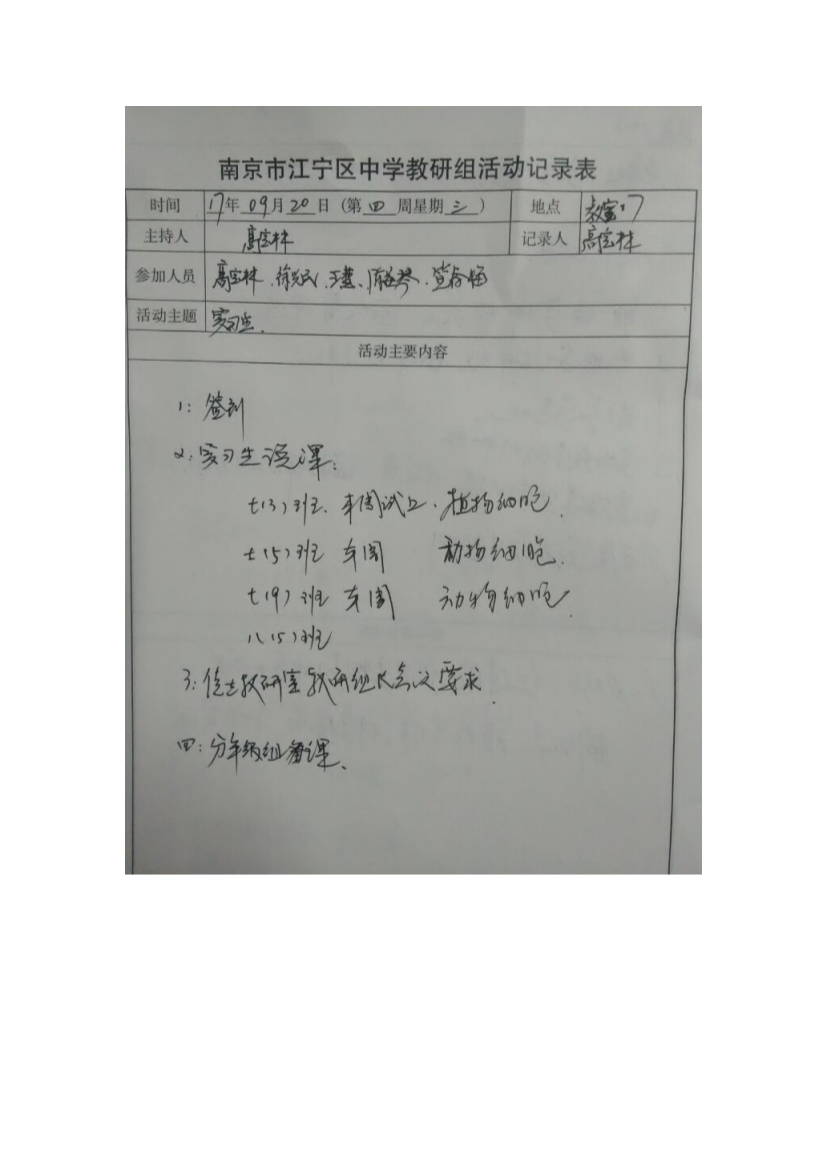 南京市江宁区中学教研组活动记录表
时间 17年 09月 20日（第 四 周星期 三 ） 地点
主持人 高宝林 记录人 高宝林
参加人员 高宝林、徐 、王慧、
活动主题 实习生
活动主要内容
1: 签到
2: 实习生说课:
七(3)班 车周 植物细胞
七(5)班 车周 动物细胞
七(9)班 车周 动物细胞
八(5)班
3: 教研室教研组长会议要求
四: 分年级组备课